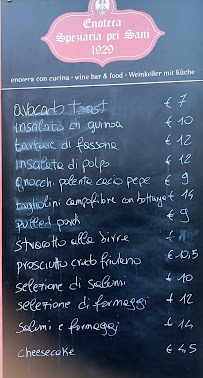 Enoteca
Speziaria pei Sani
1929
enoteca con cucina - wine bar & food - Weinkeller mit Küche
avocado toast € 7
insalata di quinoa € 10
tartare di fassona € 12
insalata di polpo € 12
gnocchi polenta cacio pepe € 9
tagliolini campofibre con bottarga € 14
pulled pork € 9
stracotto alla birra €
prosciutto crudo friulano € 10,5
selezione di salumi € 10
selezione di formaggi € 12
salumi e formaggi € 14
cheesecake € 4,5